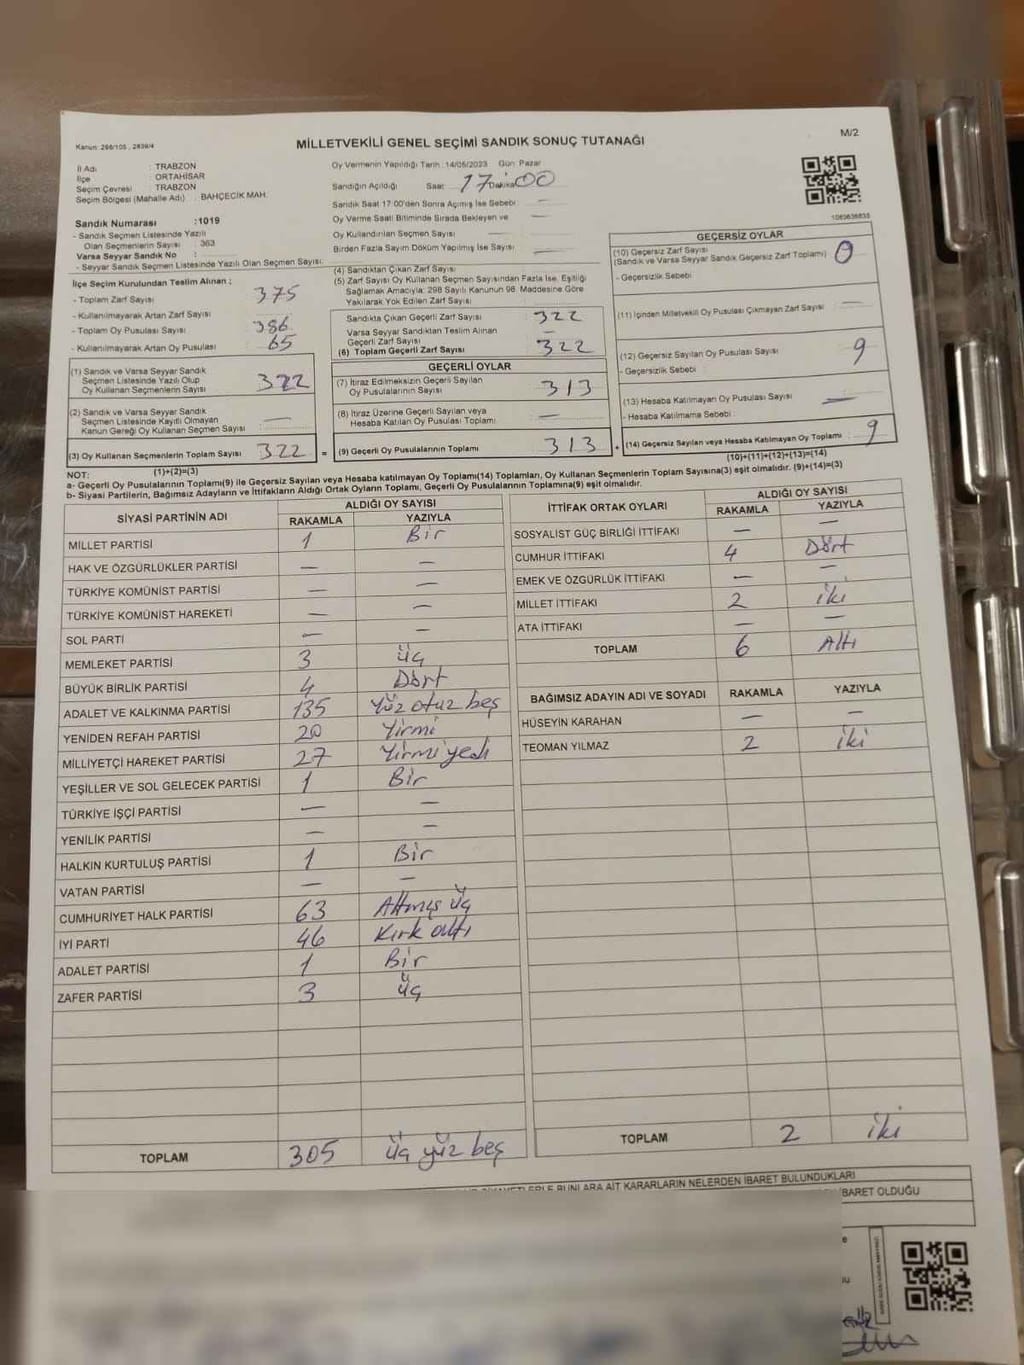 Kanun: 298/105 , 2839/4
MİLLETVEKİLİ GENEL SEÇİMİ SANDIK SONUÇ TUTANAĞI
M/2
İl Adı : TRABZON
İlçe : ORTAHİSAR
Seçim Çevresi : TRABZON
Seçim Bölgesi (Mahalle Adı) : BAHÇECİK MAH.
Sandık Numarası :1019
- Sandık Seçmen Listesinde Yazılı
Olan Seçmenlerin Sayısı : 363
Varsa Seyyar Sandık No :
- Seyyar Sandık Seçmen Listesinde Yazılı Olan Seçmen Sayısı:
İlçe Seçim Kurulundan Teslim Alınan ;
- Toplam Zarf Sayısı : 375
- Kullanılmayarak Artan Zarf Sayısı :
- Toplam Oy Pusulası Sayısı : 386
- Kullanılmayarak Artan Oy Pusulası : 65
(1) Sandık ve Varsa Seyyar Sandık
Seçmen Listesinde Yazılı Olup
Oy Kullanan Seçmenlerin Sayısı : 322
(2) Sandık ve Varsa Seyyar Sandık
Seçmen Listesinde Kayıtlı Olmayan
Kanun Gereği Oy Kullanan Seçmen Sayısı :
(3) Oy Kullanan Seçmenlerin Toplam Sayısı : 322
(1)+(2)=(3)
Oy Vermenin Yapıldığı Tarih :14/05/2023 Gün: Pazar
Sandığın Açıldığı Saat: 17 Dakika: 00
Sandık Saat 17:00'den Sonra Açılmış İse Sebebi : —
Oy Verme Saati Bitiminde Sırada Bekleyen ve —
Oy Kullandırılan Seçmen Sayısı : —
Birden Fazla Sayım Döküm Yapılmış İse Sayısı : —
(4) Sandıktan Çıkan Zarf Sayısı :
(5) Zarf Sayısı Oy Kullanan Seçmen Sayısından Fazla İse, Eşitliği
Sağlamak Amacıyla; 298 Sayılı Kanunun 98. Maddesine Göre
Yakılarak Yok Edilen Zarf Sayısı :
Sandıkta Çıkan Geçerli Zarf Sayısı : 322
Varsa Seyyar Sandıktan Teslim Alınan
Geçerli Zarf Sayısı : —
(6) Toplam Geçerli Zarf Sayısı : 322
GEÇERLİ OYLAR
(7) İtiraz Edilmeksizin Geçerli Sayılan
Oy Pusulalarının Sayısı : 313
(8) İtiraz Üzerine Geçerli Sayılan veya
Hesaba Katılan Oy Pusulası Toplamı : —
= (9) Geçerli Oy Pusulalarının Toplamı : 313 +
GEÇERSİZ OYLAR
(10) Geçersiz Zarf Sayısı
(Sandık ve Varsa Seyyar Sandık Geçersiz Zarf Toplamı) : 0
- Geçersizlik Sebebi :
(11) İçinden Milletvekili Oy Pusulası Çıkmayan Zarf Sayısı : —
(12) Geçersiz Sayılan Oy Pusulası Sayısı : 9
- Geçersizlik Sebebi :
(13) Hesaba Katılmayan Oy Pusulası Sayısı : —
- Hesaba Katılmama Sebebi :
(14) Geçersiz Sayılan veya Hesaba Katılmayan Oy Toplamı : 9
(10)+(11)+(12)+(13)=(14)
NOT:
a- Geçerli Oy Pusulalarının Toplamı(9) ile Geçersiz Sayılan veya Hesaba katılmayan Oy Toplamı(14) Toplamları, Oy Kullanan Seçmenlerin Toplam Sayısına(3) eşit olmalıdır. (9)+(14)=(3)
b- Siyasi Partilerin, Bağımsız Adayların ve İttifakların Aldığı Ortak Oyların Toplamı, Geçerli Oy Pusulalarının Toplamına(9) eşit olmalıdır.
SİYASİ PARTİNİN ADI ALDIĞI OY SAYISI
RAKAMLA YAZIYLA
MİLLET PARTİSİ 1 Bir
HAK VE ÖZGÜRLÜKLER PARTİSİ — —
TÜRKİYE KOMÜNİST PARTİSİ — —
TÜRKİYE KOMÜNİST HAREKETİ — —
SOL PARTİ — —
MEMLEKET PARTİSİ 3 üç
BÜYÜK BİRLİK PARTİSİ 4 Dört
ADALET VE KALKINMA PARTİSİ 135 Yüz otuz beş
YENİDEN REFAH PARTİSİ 20 Yirmi
MİLLİYETÇİ HAREKET PARTİSİ 27 Yirmi yedi
YEŞİLLER VE SOL GELECEK PARTİSİ 1 Bir
TÜRKİYE İŞÇİ PARTİSİ — —
YENİLİK PARTİSİ — —
HALKIN KURTULUŞ PARTİSİ 1 Bir
VATAN PARTİSİ — —
CUMHURİYET HALK PARTİSİ 63 Altmış üç
İYİ PARTİ 46 Kırk altı
ADALET PARTİSİ 1 Bir
ZAFER PARTİSİ 3 üç
TOPLAM 305 üç yüz beş
İTTİFAK ORTAK OYLARI ALDIĞI OY SAYISI
RAKAMLA YAZIYLA
SOSYALİST GÜÇ BİRLİĞİ İTTİFAKI — —
CUMHUR İTTİFAKI 4 Dört
EMEK VE ÖZGÜRLÜK İTTİFAKI — —
MİLLET İTTİFAKI 2 iki
ATA İTTİFAKI — —
TOPLAM 6 Altı
BAĞIMSIZ ADAYIN ADI VE SOYADI RAKAMLA YAZIYLA
HÜSEYİN KARAHAN — —
TEOMAN YILMAZ 2 iki
TOPLAM 2 iki
ARA AİT KARARLARIN NELERDEN İBARET BULUNDUKLARI
İBARET OLDUĞU